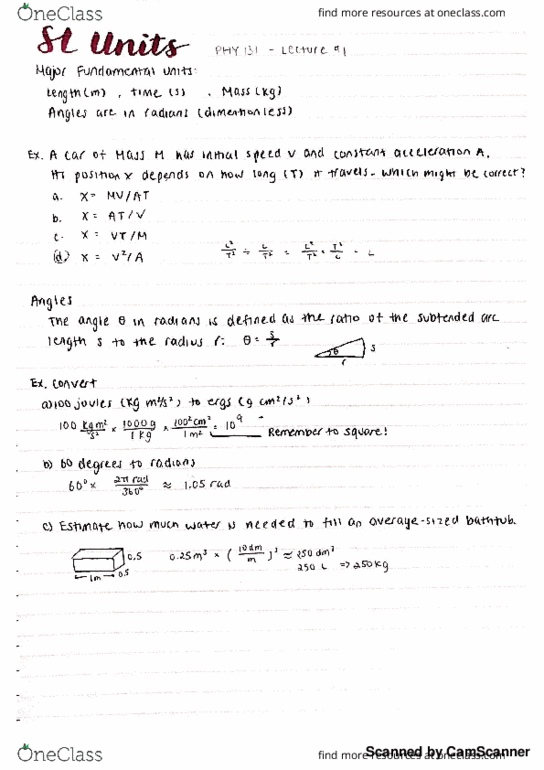 OneClass
find more resources at oneclass.com
SI Units PHY 131 - Lecture #1
Major Fundamental Units:
Length (m) , Time (s) , Mass (kg)
Angles are in radians (dimentionless)
Ex. A car of Mass M has initial speed V and constant acceleration A.
Its position x depends on how long (T) it travels. Which might be correct?
a. x = MV/AT
b. x = AT/V
c. x = VT/M
(d.) x = V²/A L²/T² ÷ L/T² = L²/T² × T²/L = L
Angles
The angle θ in radians is defined as the ratio of the subtended arc
length s to the radius r: θ = s/r
θ s
r
Ex. Convert
a) 100 joules (kg m²/s²) to ergs (g cm²/s²)
100 kg m²/s² × 1000g/1kg × 100² cm²/1m² = 10⁹ Remember to square!
b) 60 degrees to radians
60° × 2π rad/360° ≈ 1.05 rad
c) Estimate how much water is needed to fill an average-sized bathtub.
0.5 0.25 m³ × (10dm/m)³ ≈ 250 dm³
1m 0.5 250 L => 250 kg
OneClass
find more resources at oneclass.com
Scanned by CamScanner